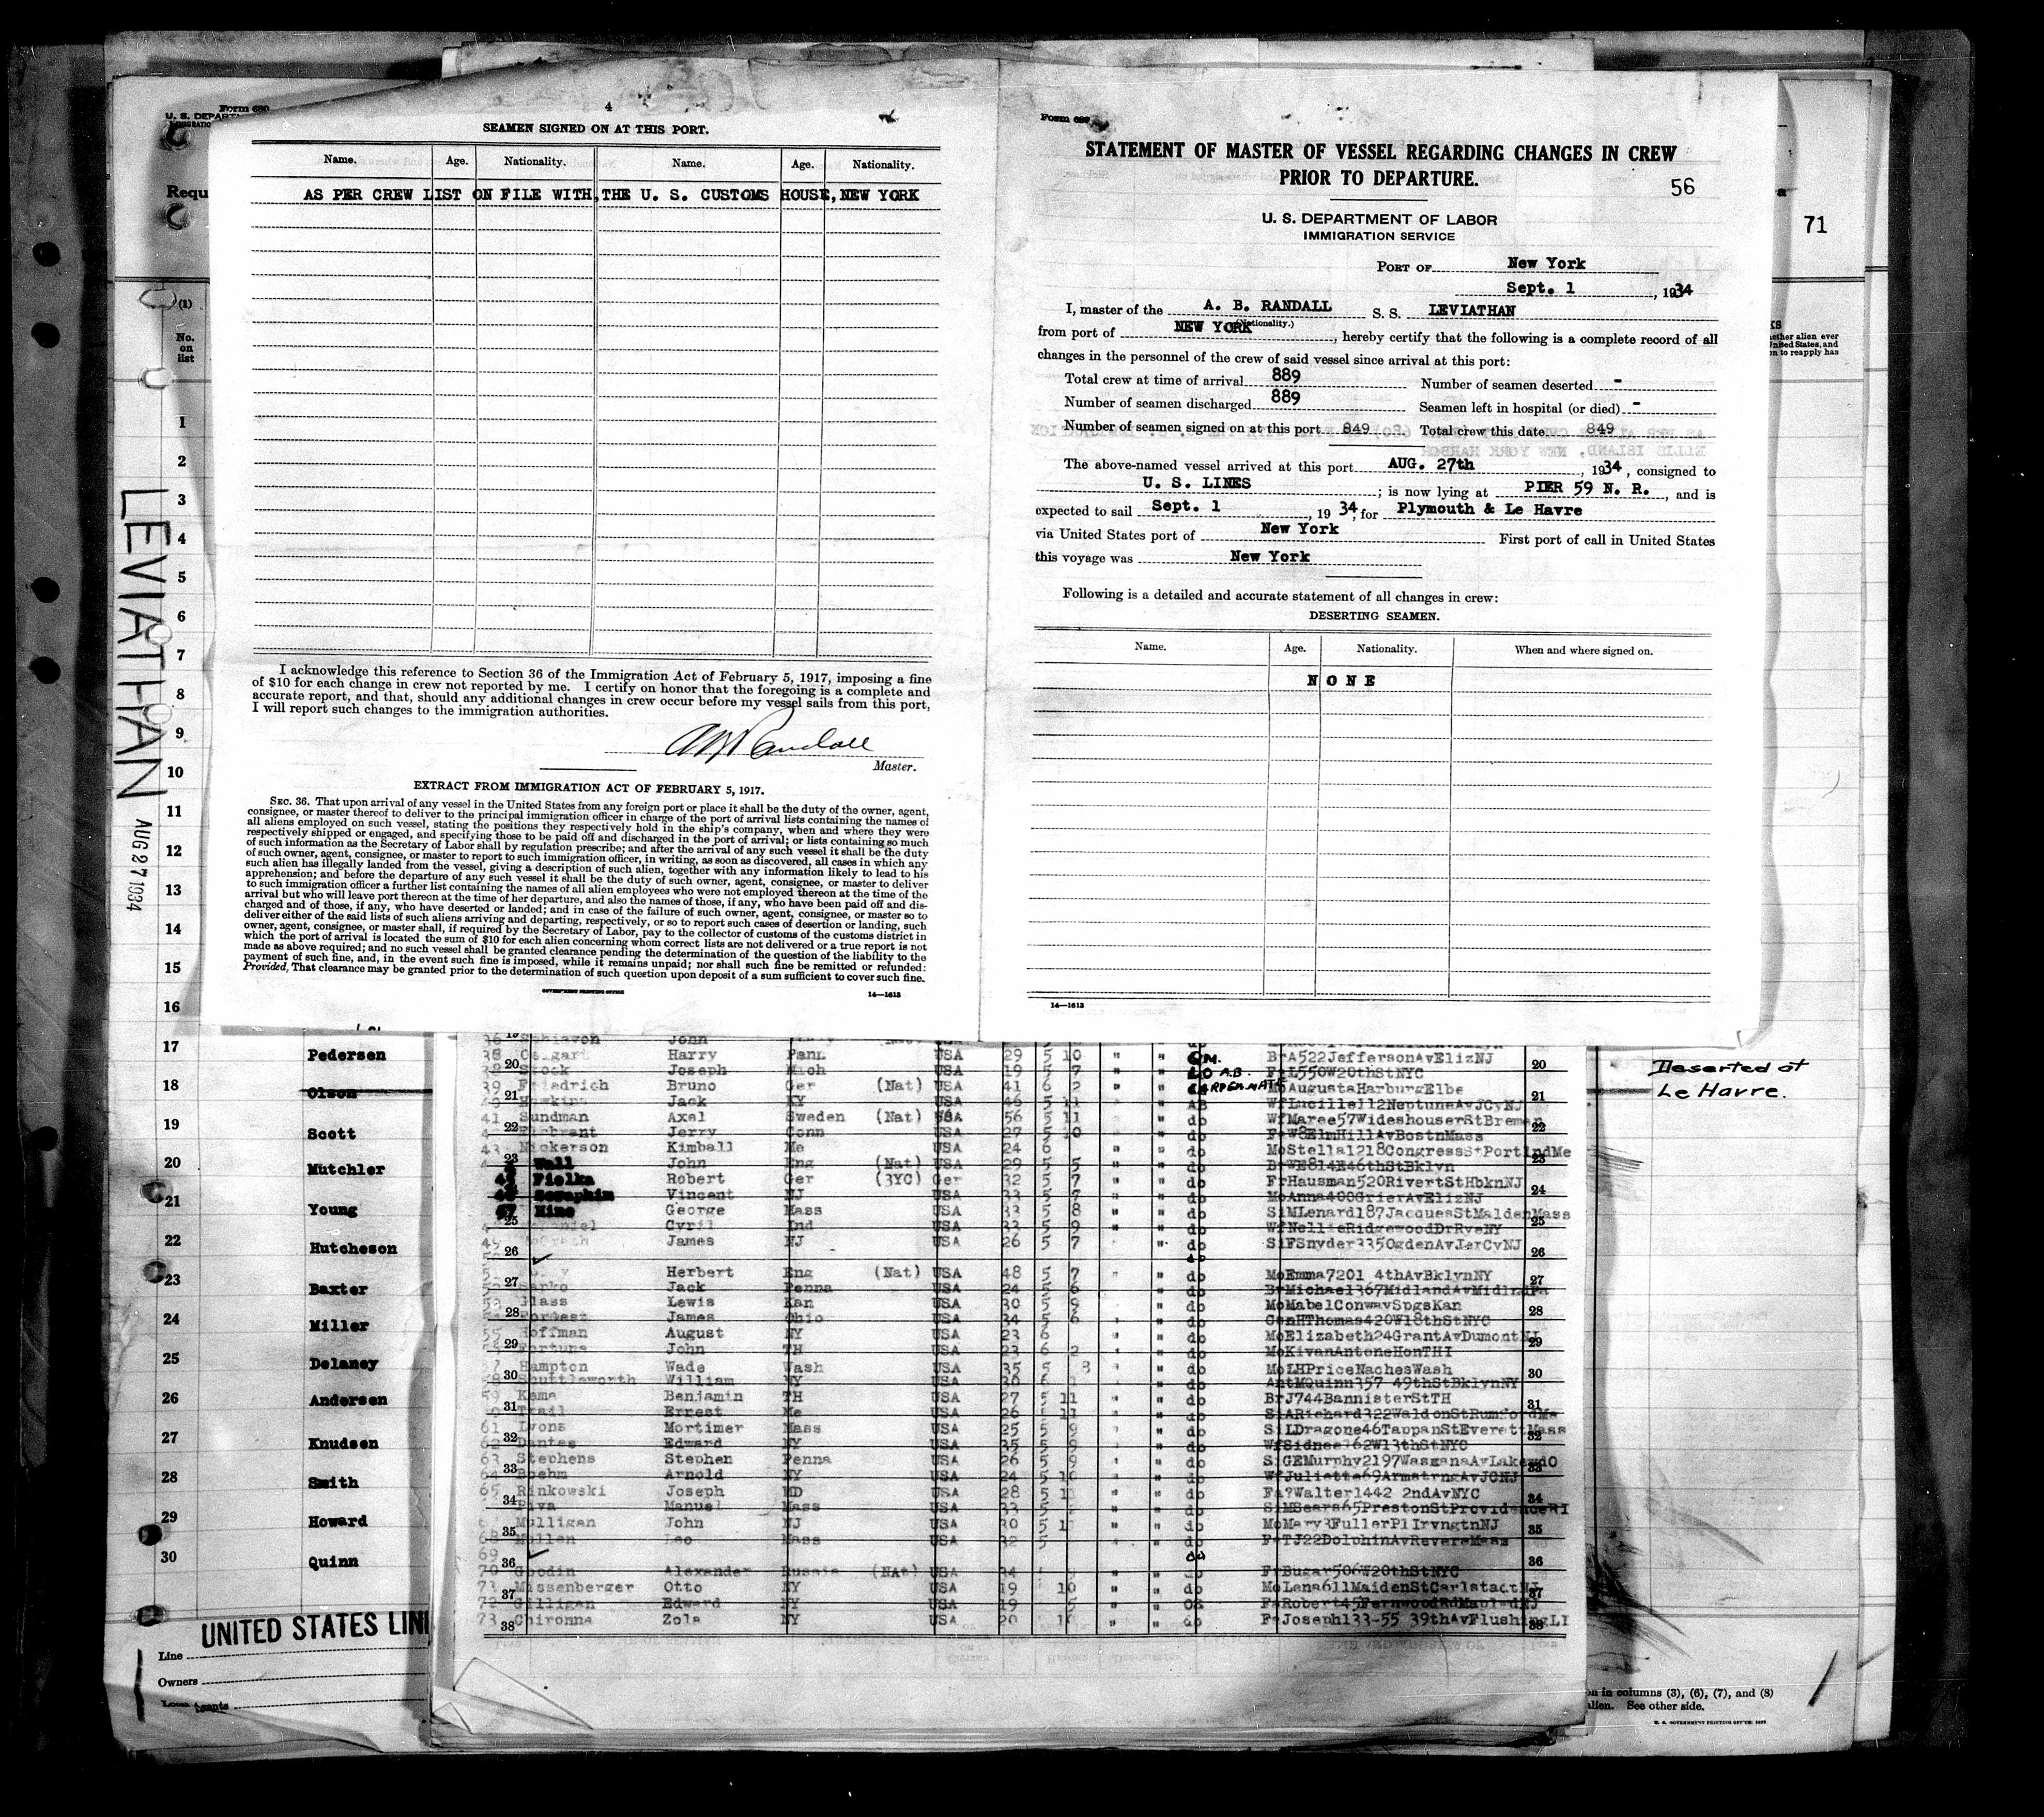 Form 680
U. S. DEPART
Requ
(1)
No.
on
list
LEVIATHAN
AUG 27 1934
4
SEAMEN SIGNED ON AT THIS PORT.
Name. Age. Nationality. Name. Age. Nationality.
AS PER CREW LIST ON FILE WITH THE U. S. CUSTOMS HOUSE, NEW YORK
I acknowledge this reference to Section 36 of the Immigration Act of February 5, 1917, imposing a fine
of $10 for each change in crew not reported by me. I certify on honor that the foregoing is a complete and
accurate report, and that, should any additional changes in crew occur before my vessel sails from this port,
I will report such changes to the immigration authorities.
A B Randall
Master.
EXTRACT FROM IMMIGRATION ACT OF FEBRUARY 5, 1917.
SEC. 36. That upon arrival of any vessel in the United States from any foreign port or place it shall be the duty of the owner, agent,
consignee, or master thereof to deliver to the principal immigration officer in charge of the port of arrival lists containing the names of
all aliens employed on such vessel, stating the positions they respectively hold in the ship's company, when and where they were
respectively shipped or engaged, and specifying those to be paid off and discharged in the port of arrival; or lists containing so much
of such information as the Secretary of Labor shall by regulation prescribe; and after the arrival of any such vessel it shall be the duty
of such owner, agent, consignee, or master to report to such immigration officer, in writing, as soon as discovered, all cases in which any
such alien has illegally landed from the vessel, giving a description of such alien, together with any information likely to lead to his
apprehension; and before the departure of any such vessel it shall be the duty of such owner, agent, consignee, or master to deliver
to such immigration officer a further list containing the names of all alien employees who were not employed thereon at the time of the
arrival but who will leave port thereon at the time of her departure, and also the names of those, if any, who have been paid off and dis-
charged and of those, if any, who have deserted or landed; and in case of the failure of such owner, agent, consignee, or master so to
deliver either of the said lists of such aliens arriving and departing, respectively, or so to report such cases of desertion or landing, such
owner, agent, consignee, or master shall, if required by the Secretary of Labor, pay to the collector of customs of the customs district in
which the port of arrival is located the sum of $10 for each alien concerning whom correct lists are not delivered or a true report is not
made as above required; and no such vessel shall be granted clearance pending the determination of the question of the liability to the
payment of such fine, and, in the event such fine is imposed, while it remains unpaid; nor shall such fine be remitted or refunded:
Provided, That clearance may be granted prior to the determination of such question upon deposit of a sum sufficient to cover such fine.
GOVERNMENT PRINTING OFFICE 14—1613
STATEMENT OF MASTER OF VESSEL REGARDING CHANGES IN CREW
PRIOR TO DEPARTURE.
56
U. S. DEPARTMENT OF LABOR
IMMIGRATION SERVICE
PORT OF New York
Sept. 1, 1934
I, master of the A. B. RANDALL S. S. LEVIATHAN
(Nationality.)
from port of NEW YORK, hereby certify that the following is a complete record of all
changes in the personnel of the crew of said vessel since arrival at this port:
Total crew at time of arrival 889 Number of seamen deserted -
Number of seamen discharged 889 Seamen left in hospital (or died) -
Number of seamen signed on at this port 849 Total crew this date 849
The above-named vessel arrived at this port AUG. 27th, 1934, consigned to
U. S. LINES; is now lying at PIER 59 N. R., and is
expected to sail Sept. 1, 1934, for Plymouth & Le Havre
via United States port of New York First port of call in United States
this voyage was New York
Following is a detailed and accurate statement of all changes in crew:
DESERTING SEAMEN.
Name. Age. Nationality. When and where signed on.
NONE
14—1613
71
ether alien ever
nited States, and
n to reapply has
1
2
3
4
5
6
7
8
9
10
11
12
13
14
15
16
17 Pedersen
18 Olson
19 Scott
20 Mutchler
21 Young
22 Hutcheson
23 Baxter
24 Miller
25 Delaney
26 Andersen
27 Knudsen
28 Smith
29 Howard
30 Quinn
UNITED STATES LIN
Line
Owners
Agents
John
Harry Penn USA 29 5 10 " " QM. BrA522JeffersonAvElizNJ
20 Stock Joseph Mich USA 19 5 7 FrL550W20thStNYC 20
39 Friedrich Bruno Ger (Nat) USA 41 6 2 CARPEN.MATE MoAugustaHarburgElbe
21 Jack KY USA 46 5 11 AB WfLucille112NeptuneAvJCyNJ 21
41 Sundman Axel Sweden (Nat) USA 56 5 11 do WfMaree57WideshouserStBremen
22 Jerry Conn USA 27 5 10 do FaW8ElmHillAvBostnMass 22
43 Nickerson Kimball Me USA 24 6 do MoStella1218CongressStPortlndMe
23 Wall John Eng (Nat) USA 29 5 5 do BrWE814E46thStBklyn 23
45 Fielka Robert Ger (3YC) Ger 32 5 7 do FrHausman520RivertStHbknNJ
Seraphim Vincent NJ USA 33 5 7 do MoAnna400GrierAvElizNJ 24
47 Hine George Mass USA 33 5 8 do SiMLenard187JacquesStMaldenMass
25 Cyril Ind USA 33 5 9 do WfNellieRidgewoodDrRyeNY 25
James NJ USA 26 5 7 do SiFSnyder335OgdenAvJerCyNJ
26 26
Herbert Eng (Nat) USA 48 5 7 do MoEmma7201 4thAvBklynNY
27 Jack Penna USA 24 5 6 do BrMichael367MidlandAvMidlndPa 27
Glass Lewis Kan USA 30 5 9 do MoMabelConwaySpgsKan
28 James Ohio USA 34 5 6 do GenHThomas420W18thStNYC 28
55 Hoffman August NY USA 23 6 do MoElizabeth24GrantAvDumontNJ
29 Fortuna John TH USA 23 6 2 do MoKivanAntoneHonTHI 29
Hampton Wade Wash USA 35 5 8 do MoLHPriceNachesWash
30 Shuttleworth William NY USA do AntMQuinn357 49thStBklynNY 30
59 Kama Benjamin TH USA 27 5 11 do BrJ744BannisterStTH
31 Trail Ernest Me USA 26 5 11 do SiARichard322WaldonStRumfordMe 31
61 Lyons Mortimer Mass USA 25 5 9 do SiLDragone46TappanStEverettMass
32 62 Dantes Edward NY USA 35 5 9 do WfSidnee162W13thStNYC 32
63 Stephens Stephen Penna USA 26 5 9 do SiGEMurphy2197WasganaAvLakewdO
33 64 Boehm Arnold NY USA 24 5 10 do WfJuliette69ArmstrngAvJCNJ 33
65 Rinkowski Joseph MD USA 28 5 11 do Fa?Walter1442 2ndAvNYC
34 Piva Manuel Mass USA 33 5 do SiMSears65PrestonStProvidenceRI 34
Mulligan John NJ USA 30 5 do MoMary3FullerPlIrvngtnNJ
35 68 Mullen Leo Mass USA 32 5 do FaTJ22DolphinAvRevereMass 35
69
36 70 Alexander Russia (NAt) USA FrBugar506W20thStNYC 36
Missenberger Otto NY USA 19 10 do MoLena611MaidenStCarlstadtNJ
37 72 Gilligan Edward NY USA 19 5 OS FaRobert45FernwoodRdMaplwdNJ 37
73 Chironna Zola NY USA 20 do FaJoseph133-55 39thAvFlushingLI
38 38
Deserted at
Le Havre.
on in columns (3), (6), (7), and (8)
alien. See other side.
U. S. GOVERNMENT PRINTING OFFICE